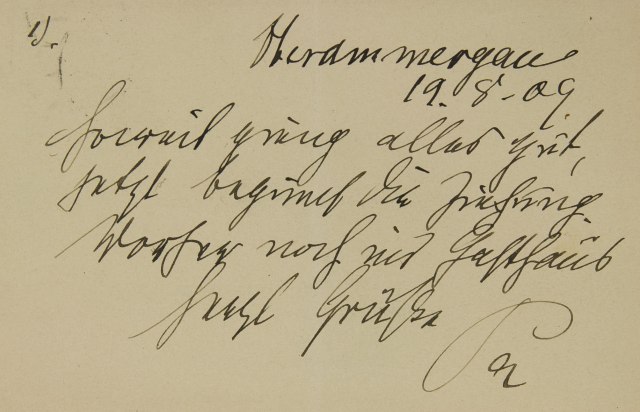 1).
Oberammergau
19. 8. - 09
Soweit ging alles gut,
jetzt beginnt die Ziehung.
Vorher noch ins Gasthaus
Herzl Grüße